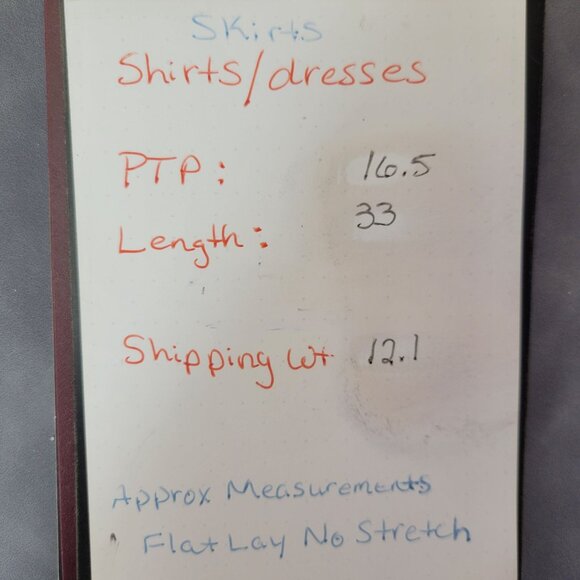 Skirts
Shirts/dresses
PTP: 16.5
Length: 33
Shipping Wt 12.1
Approx Measurements
Flat Lay No Stretch